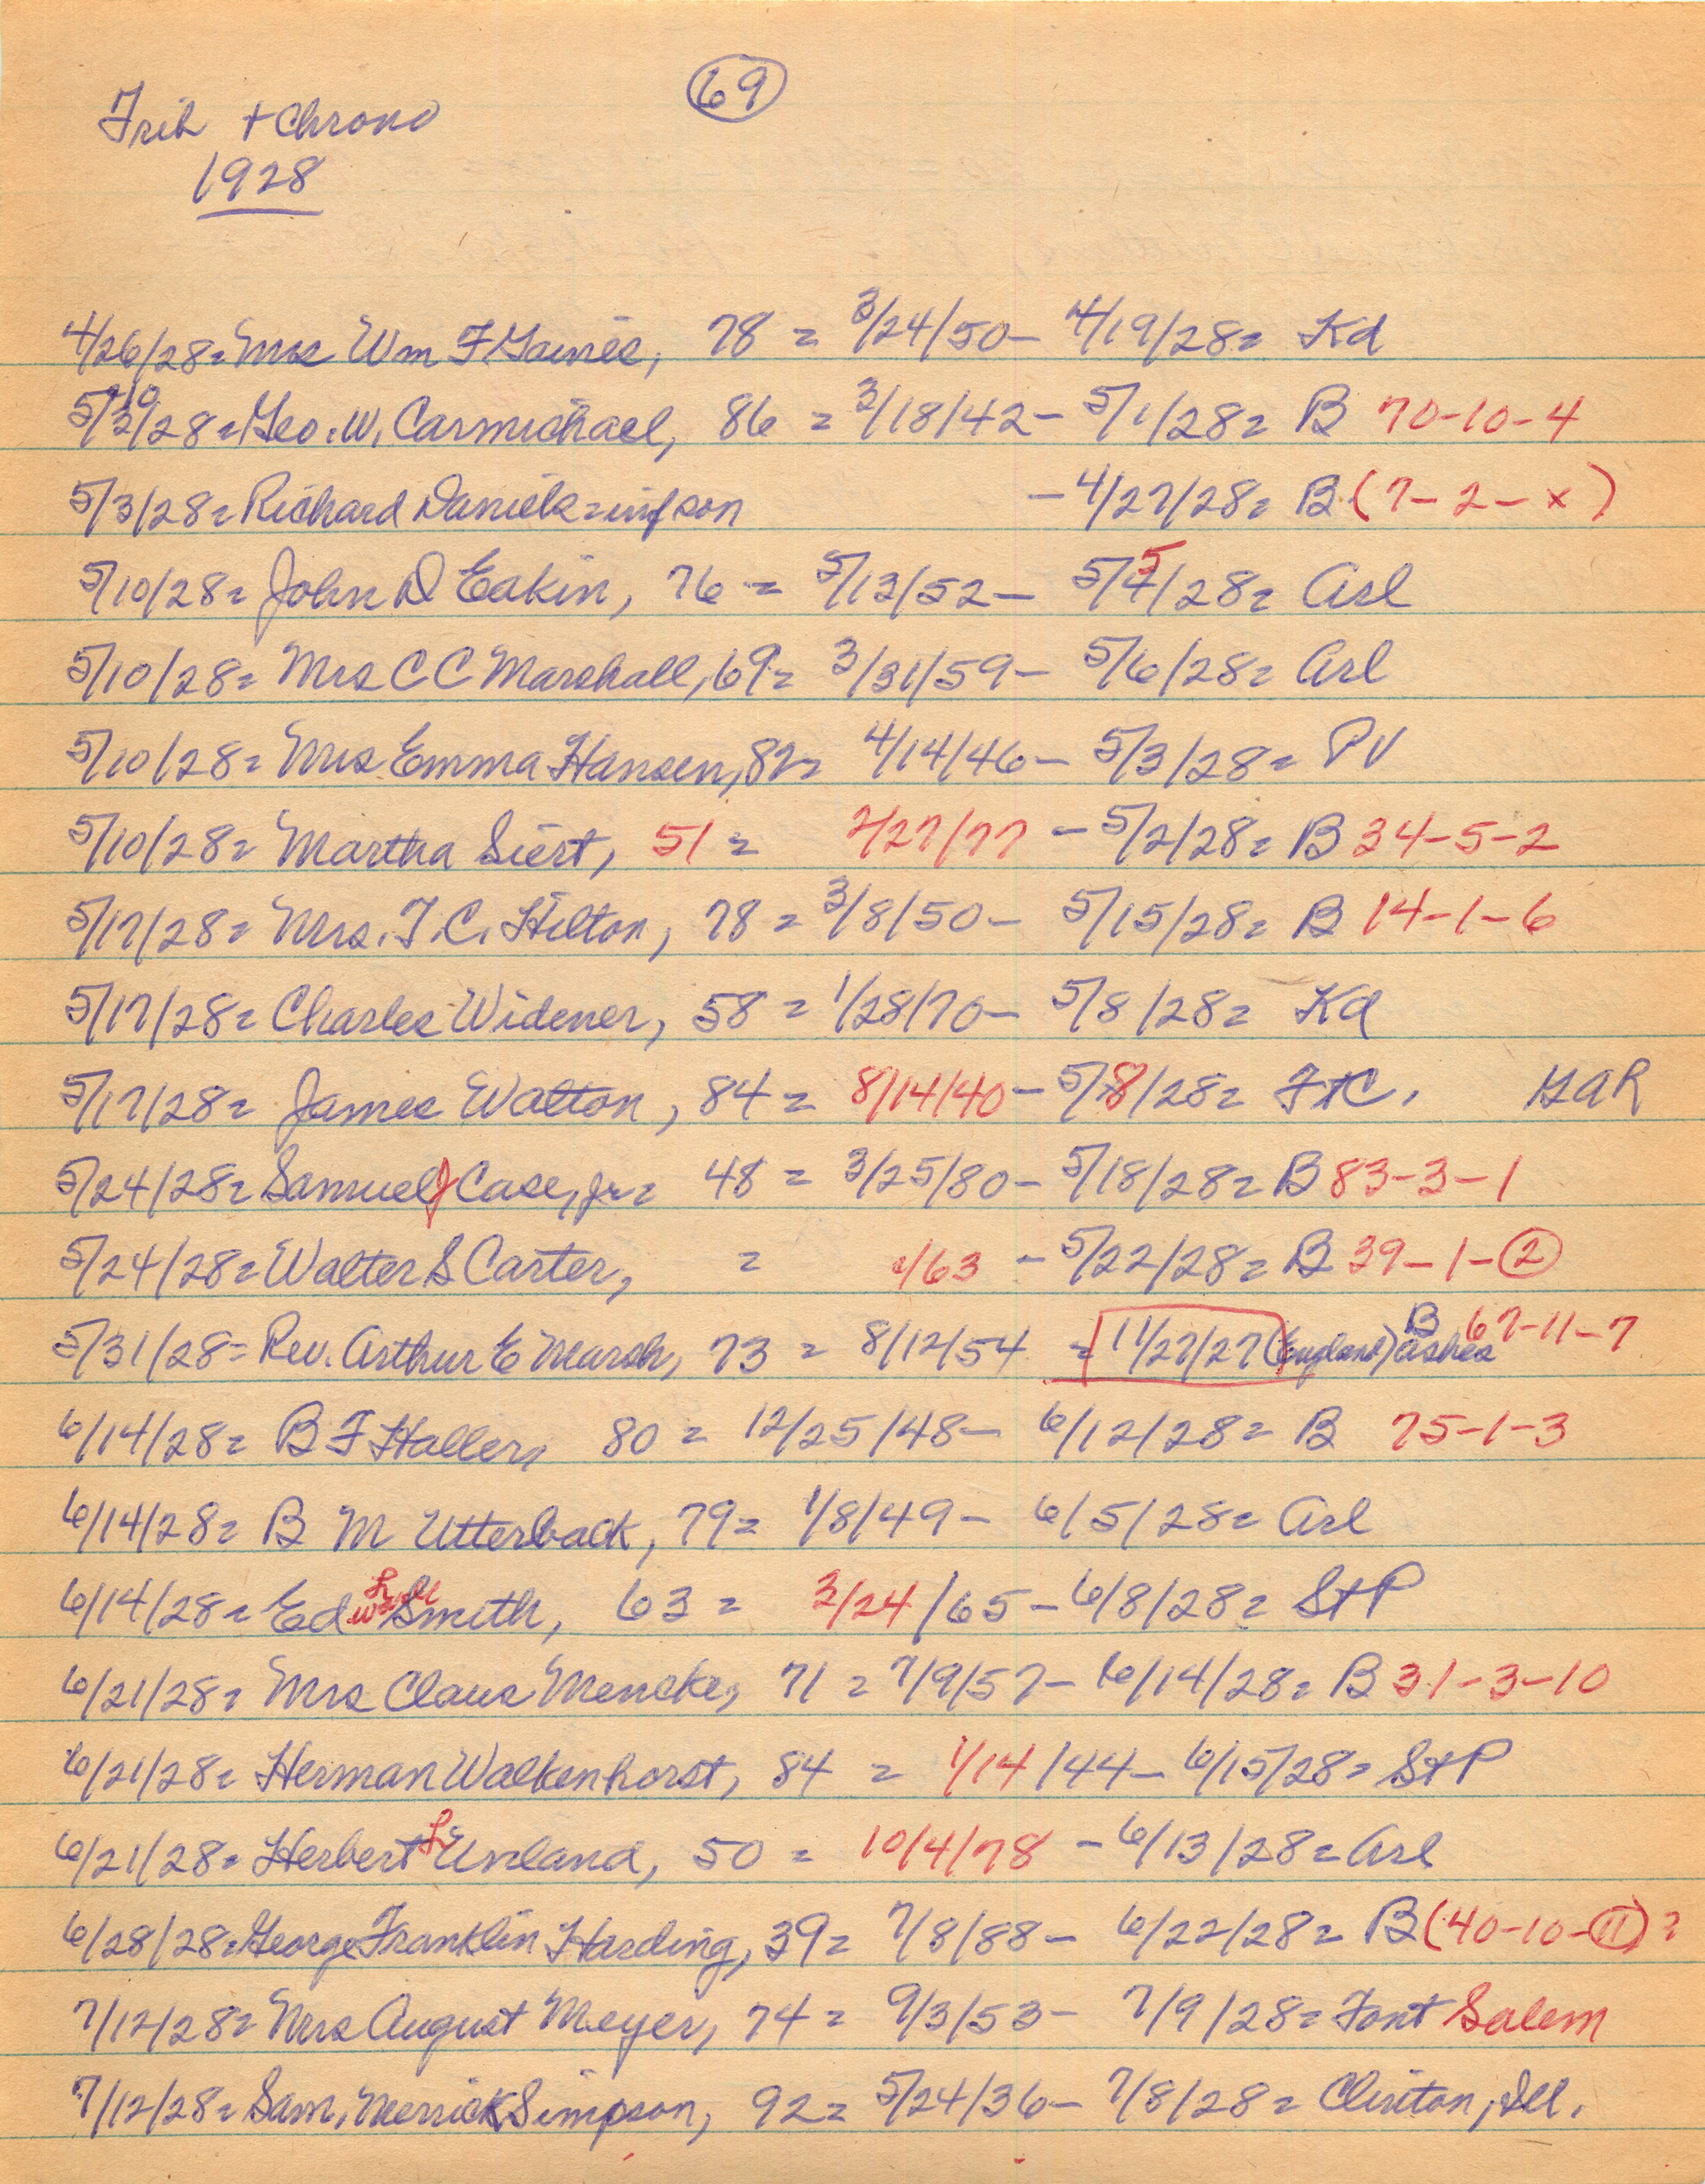 69
Trib + Chrono
1928
4/26/28= Mrs Wm F. Gaines, 78 = 3/24/50- 4/19/28= Kd
5/10/28= Geo. W. Carmichael, 86 = 3/18/42- 5/1/28= B 70-10-4
5/3/28= Richard Daniels=inf son -4/27/28= B (7-2-x)
5/10/28= John D Eakin, 76 = 5/13/52- 5/5/28= Arl
5/10/28= Mrs C C Marshall, 69= 3/31/59- 5/6/28= Arl
5/10/28= Mrs Emma Hansen, 82= 4/14/46- 5/3/28= PV
5/10/28= Martha Siert, 51 = 2/27/77 - 5/2/28= B 34-5-2
5/17/28= Mrs. T. C. Hilton, 78 = 3/8/50- 5/15/28= B 14-1-6
5/17/28= Charles Widener, 58 = 1/28/70- 5/8/28= Kd
5/17/28= James Walton, 84 = 8/14/40- 5/8/28= FtC. GAR
5/24/28= Samuel J Case, Jr= 48 = 3/25/80- 5/18/28= B 83-3-1
5/24/28= Walter S Carter, = /63 - 5/22/28= B 39-1-2
5/31/28= Rev. Arthur E Marsh, 73 = 8/12/54 = 11/27/27 (England) ashes B 67-11-7
6/14/28= B F Haller, 80 = 12/25/48- 6/12/28= B 75-1-3
6/14/28= B M Utterback, 79= 1/8/49- 6/5/28= Arl
6/14/28= Ed Smith, 63 = 3/24/65- 6/8/28= StP
6/21/28= Mrs Claus Mencke, 71 = 7/9/57- 6/14/28= B 31-3-10
6/21/28= Herman Walkenhorst, 84 = 1/14/44- 6/15/28= StP
6/21/28= Herbert L Unland, 50 = 10/4/78 - 6/13/28= Arl
6/28/28= George Franklin Harding, 39= 7/8/88- 6/22/28= B (40-10-11)?
7/12/28= Mrs August Meyer, 74= 9/3/53- 7/9/28= Font Salem
7/12/28= Sam. Merrick Simpson, 92= 5/24/36- 7/8/28= Clinton, Ill.